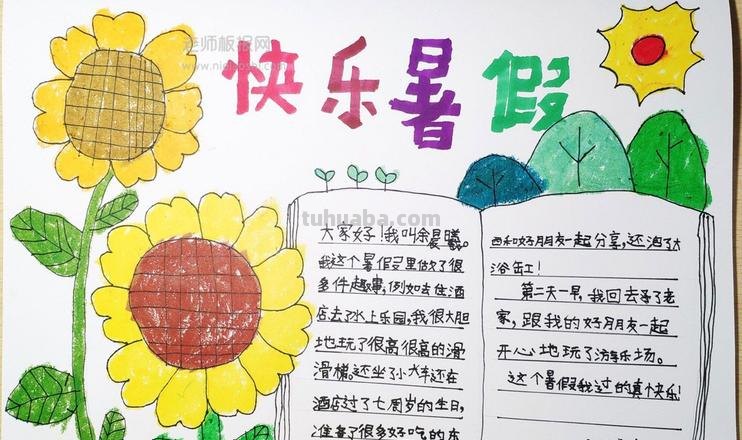 老师板报网
快乐暑假
tuhuaba.com
大家好！我叫余晨曦。
我这个暑假里做了很
多件趣事，例如去住酒
店去了水上乐园，我很大胆
地玩了很高很高的滑
滑梯。还坐了小火车还在
酒店过了七周岁的生日，
准备了很多好吃的东
西和好朋友一起分享，还泡了大
浴缸！
第二天一早，我回去了老
家，跟我的好朋友一起
开心地玩了游乐场。
这个暑假我过的真个快乐！